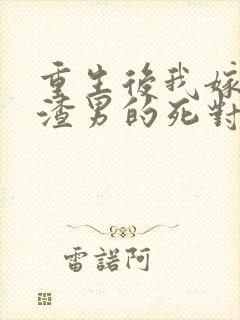 重生後我嫁
渣男的死對
雷諾阿